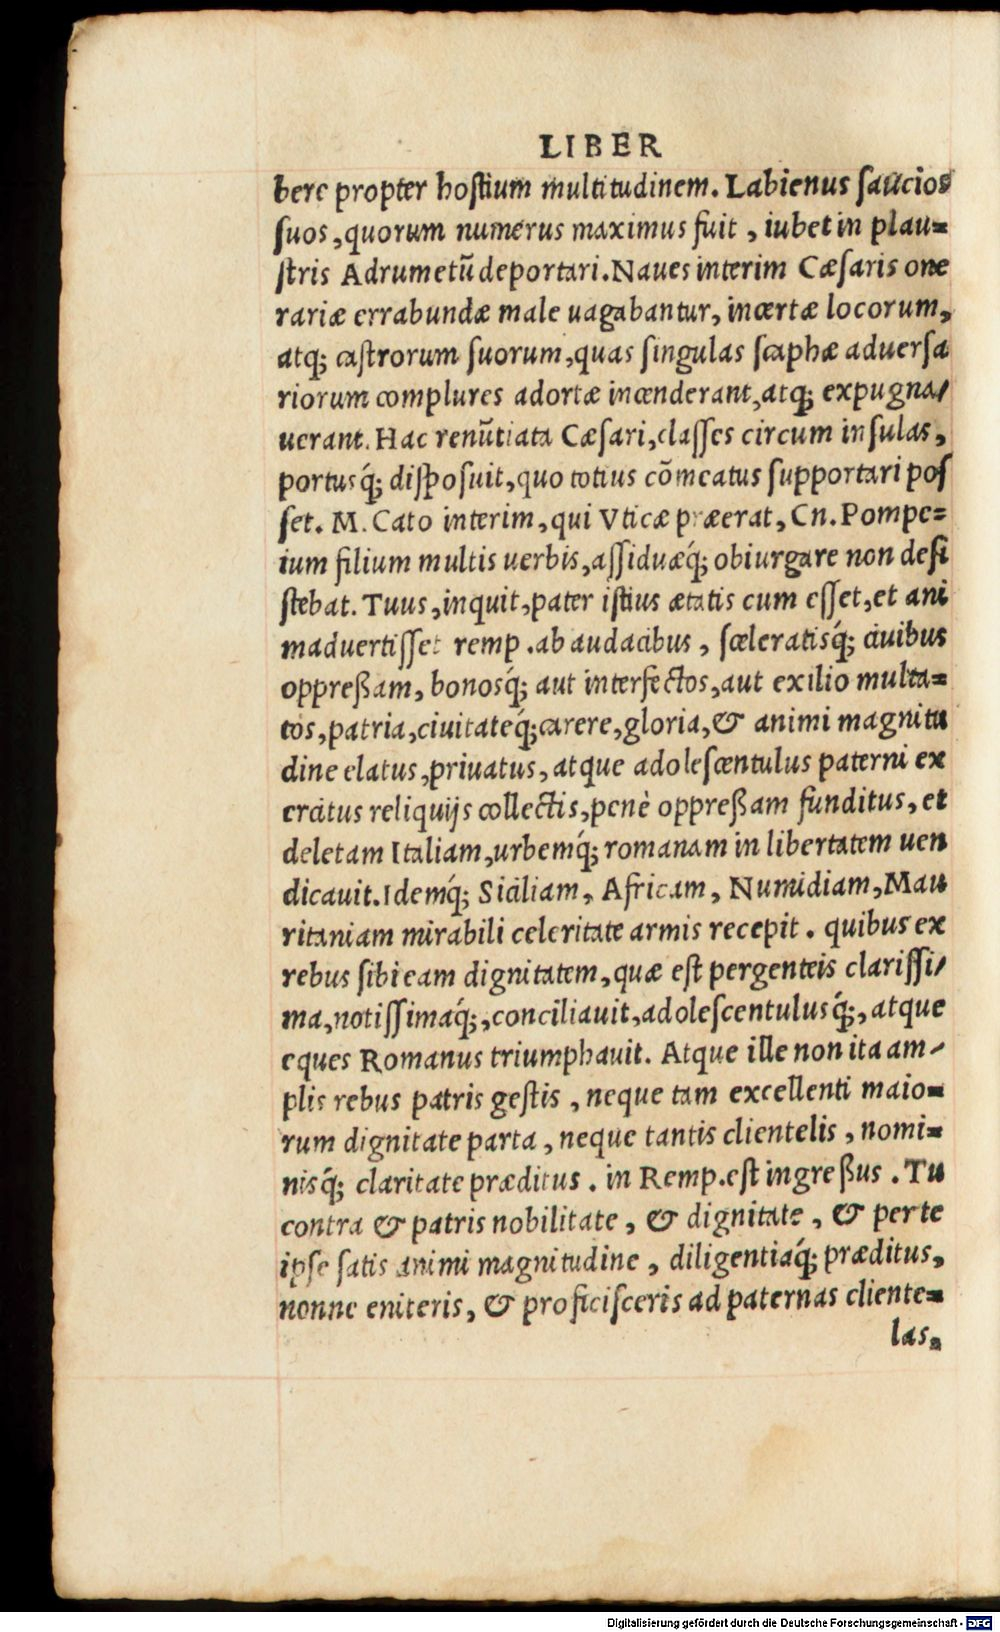 LIBER
bere propter hoſtium multitudinem. Labienus ſaucios
ſuos, quorum numerus maximus fuit, iubet in plau=
ſtris Adrumetū deportari. Naues interim Cæſaris one
rariæ errabundæ male uagabantur, incertæ locorum,
atq; caſtrorum ſuorum, quas ſingulas ſcaphæ aduerſa
riorum complures adortæ incenderant, atq; expugna/
uerant. Hac renūtiata Cæſari, claſſes circum inſulas,
portusq́; diſpoſuit, quo totius cōmeatus ſupportari poſ
ſet. M. Cato interim, qui Vticæ præerat, Cn. Pompe=
ium filium multis uerbis, aſſiduæq́; obiurgare non deſi
ſtebat. Tuus, inquit, pater iſtius ætatis cum eſſet, et ani
maduertiſſet remp. ab audacibus, ſceleratisq́; ciuibus
oppreßam, bonosq́; aut interfectos, aut exilio multa=
tos, patria, ciuitateq́; carere, gloria, & animi magnitu
dine elatus, priuatus, atque adoleſcentulus paterni ex
ercitus reliquijs collectis, penè oppreßam funditus, et
deletam Italiam, urbemq́; romanam in libertatem uen
dicauit. Idemq́; Siciliam, Africam, Numidiam, Mau
ritaniam mirabili celeritate armis recepit. quibus ex
rebus ſibi eam dignitatem, quæ eſt per genteis clariſſi/
ma, notiſſimaq́;, conciliauit, adoleſcentulusq́;, atque
eques Romanus triumphauit. Atque ille non ita am/
plis rebus patris geſtis, neque tam excellenti maio=
rum dignitate parta, neque tantis clientelis, nomi=
nisq́; claritate præditus. in Remp. eſt ingreßus. Tu
contra & patris nobilitate, & dignitate, & per te
ipſe ſatis animi magnitudine, diligentiaq́; præditus,
nonne eniteris, & proficiſceris ad paternas cliente=
las.
Digitalisierung gefördert durch die Deutsche Forschungsgemeinschaft - DFG